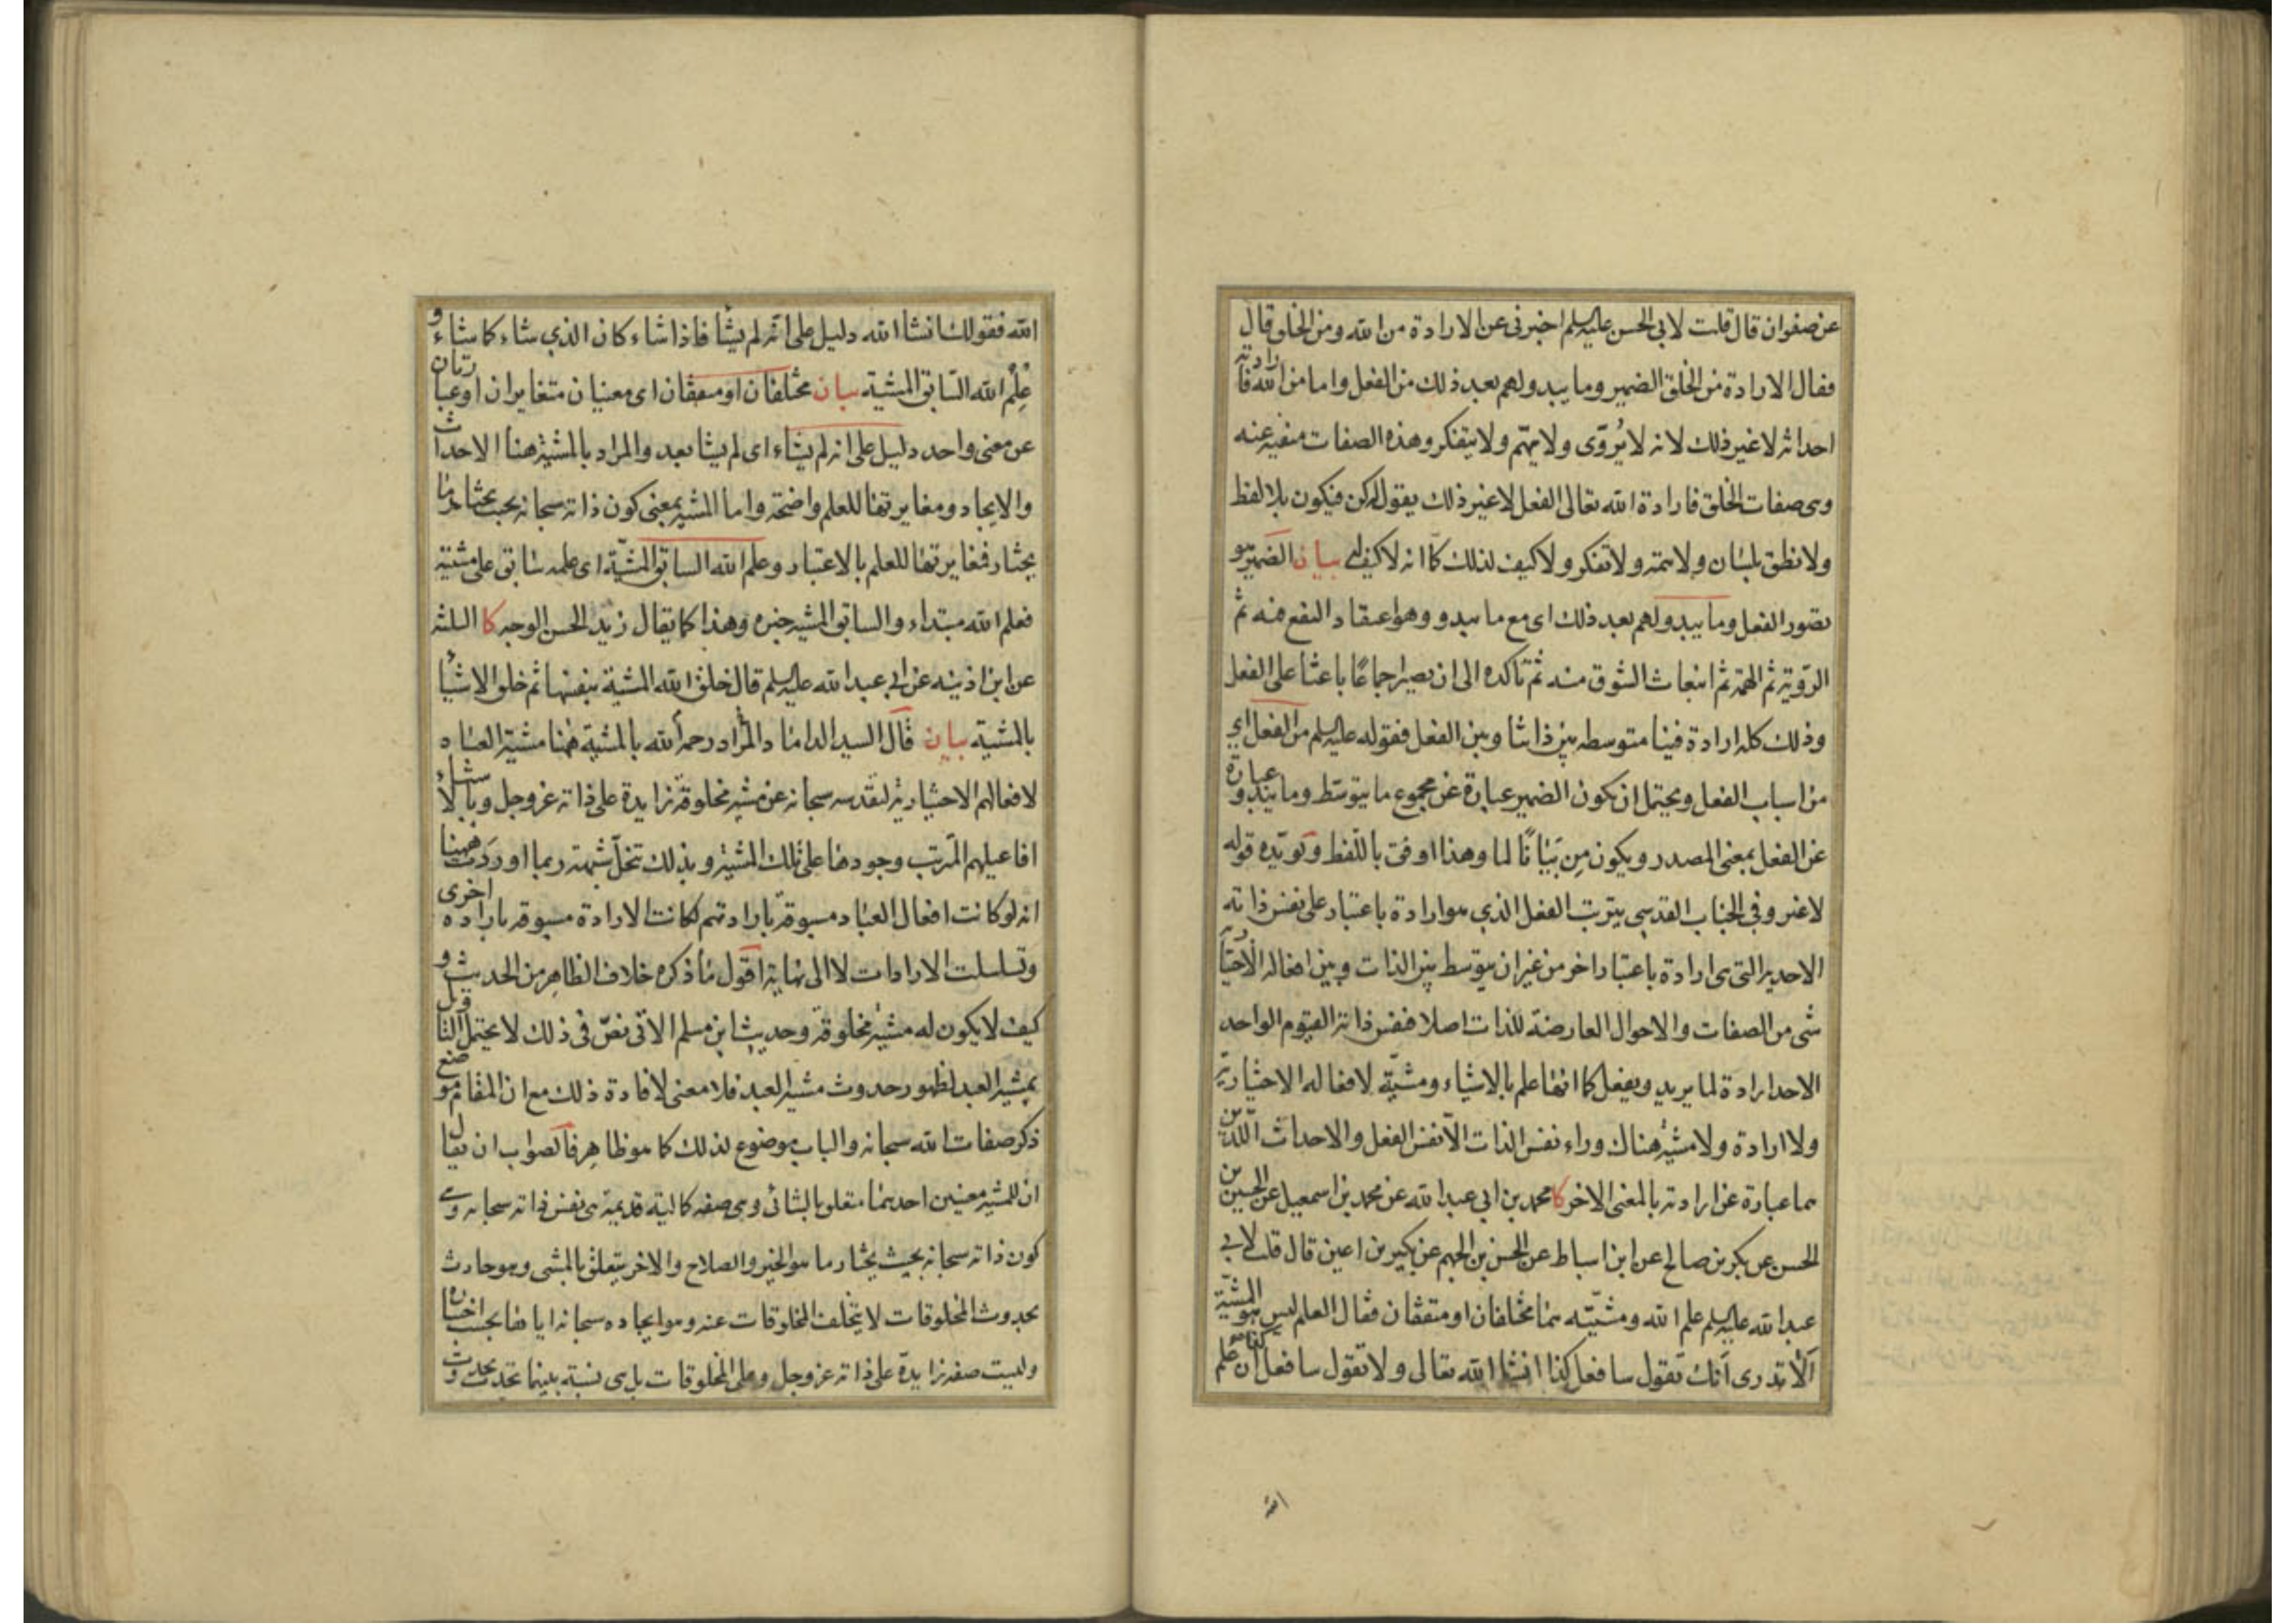 عن صفوان قال قلت لابى الحسن عليه السلم اخبرنى عن الارادة من الله ومن الخلق قال
فقال الارادة من الخلق الضمير وما يبدو لهم بعد ذلك من الفعل واما من الله فارادته
احداثه لا غير ذلك لانه لا يُروّى ولا يهمّ ولا يتفكر وهذه الصفات منفيه عنه
وهى صفات الخلق فارادة الله تعالى الفعل لا غير ذلك يقول له كن فيكون بلا لفظ
ولا نطق بلسان ولا همة ولا تفكر ولا كيف لذلك كما انه لا كيف له بيان الضمير هو
تصور الفعل وما يبدو لهم بعد ذلك اى مع ما يبدو وهو اعتقاد النفع فيه ثم
الرّوية ثم الهمة ثم انبعاث الشوق منه ثم تاكده الى ان يصير اجماعًا باعثا على الفعل
وذلك كله ارادة فينا متوسطه بين ذاتنا وبين الفعل فقوله عليه السلم من الفعل اي
من اسباب الفعل ويحتمل ان يكون الضمير عبارة عن مجموع ما يتوسّط وما يبدو عبارة
عن الفعل بمعنى المصدر ويكون مِن بَيَانًا لما وهذا اوفق باللّفظ ويؤيّده قوله
لا غير وفى الجناب القدسى يترتب الفعل الذي هو ارادة باعتبار على نفس ذاته
الاحدية التى هى ارادة باعتبار اخر من غير ان يتوسط بين الذات وبين افعاله الاختيارية
شى من الصفات والاحوال العارضة للذات اصلا فنفس ذاته القيوم الواحد
الاحد ارادة لما يريد ويفعل كما انها علم بالاشياء ومشيّة لافعاله الاختيارية
ولا ارادة ولا مشية هناك وراء نفس الذات الّا نفس الفعل والاحداث اللّذين
هما عبارة عن ارادته بالمعنى الاخر كا محمد بن ابى عبد الله عن محمد بن اسمعيل عن الحسين بن
الحسن عن بكر بن صالح عن ابن اسباط عن الحسن بن الجهم عن بكير بن اعين قال قلت لابي
عبد الله عليه السلم علم الله ومشيّته هما مختلفان او متفقان فقال العلم ليس هو المشيّة
ألا تدرى أنك تقول سافعل كذا انشا الله تعالى ولا تقول سافعل كذا ان علم
الله
الله فقولك انشا الله دليل على انه لم يشأ فاذا شاء كان الذي شاء كما شاء و
عِلْمُ الله السّابق المشية بيان مختلفان او متفقان اى معنيان متغايران او عبارتان
عن معنى واحد دليل على انه لم يشاء اى لم يشا بعد والمراد بالمشية هنا الاحداث
والايجاد ومغايرتها للعلم واضحة واما المشية بمعنى كون ذاته سبحانه بحيث يختار ما
يختار فمغايرتها للعلم بالاعتبار وعلم الله السابق المشيّة اى علمه سابق على مشيته
فعلم الله مبتداء والسابق المشية خبره وهذا كما يقال زيد الحسن الوجه كا الثلثة
عن ابن اذينه عن ابى عبد الله عليه السلم قال خلق الله المشية بنفسها ثم خلق الاشيأ
بالمشية بيان قال السيد الداماد المراد رحمه الله بالمشية ههنا مشية العباد
لافعالهم الاختيارية لتقدسه سبحانه عن مشية مخلوقة زايدة على ذاته عز وجل وبالاشياء
افاعيلهم المترتب وجودها على تلك المشية وبذلك تنحلّ شبهة ربما اوردت ههنا
انه لو كانت افعال العباد مسبوقة بارادتهم لكانت الارادة مسبوقة بارادة اخرى
وتسلسلت الارادات لا الى نهاية اقول ما ذكره خلاف الظاهر من الحديث و
كيف لا يكون له مشية مخلوقة وحديث ابن مسلم الاتى نصّ فى ذلك لا يحتمل التاويل
بمشية العبد لظهور حدوث مشية العبد فلا معنى لافادة ذلك مع ان المقام موضع
ذكر صفات الله سبحانه والباب موضوع لذلك كما هو ظاهر فالصواب ان يقال
ان للمشية معنيين احدهما متعلق بالشائى وهى صفة كمالية قديمة هى نفس ذاته سبحانه وهى
كون ذاته سبحانه بحيث يختار ما هو الخير والصلاح والاخر يتعلق بالمشى وهو حادث
بحدوث المخلوقات لا يتخلف المخلوقات عنه وهو ايجاده سبحانه اياها بحسب اختياره
وليست صفة زايدة على ذاته عز وجل وعلى المخلوقات بل هى نسبة بينهما تحدث بحدوث